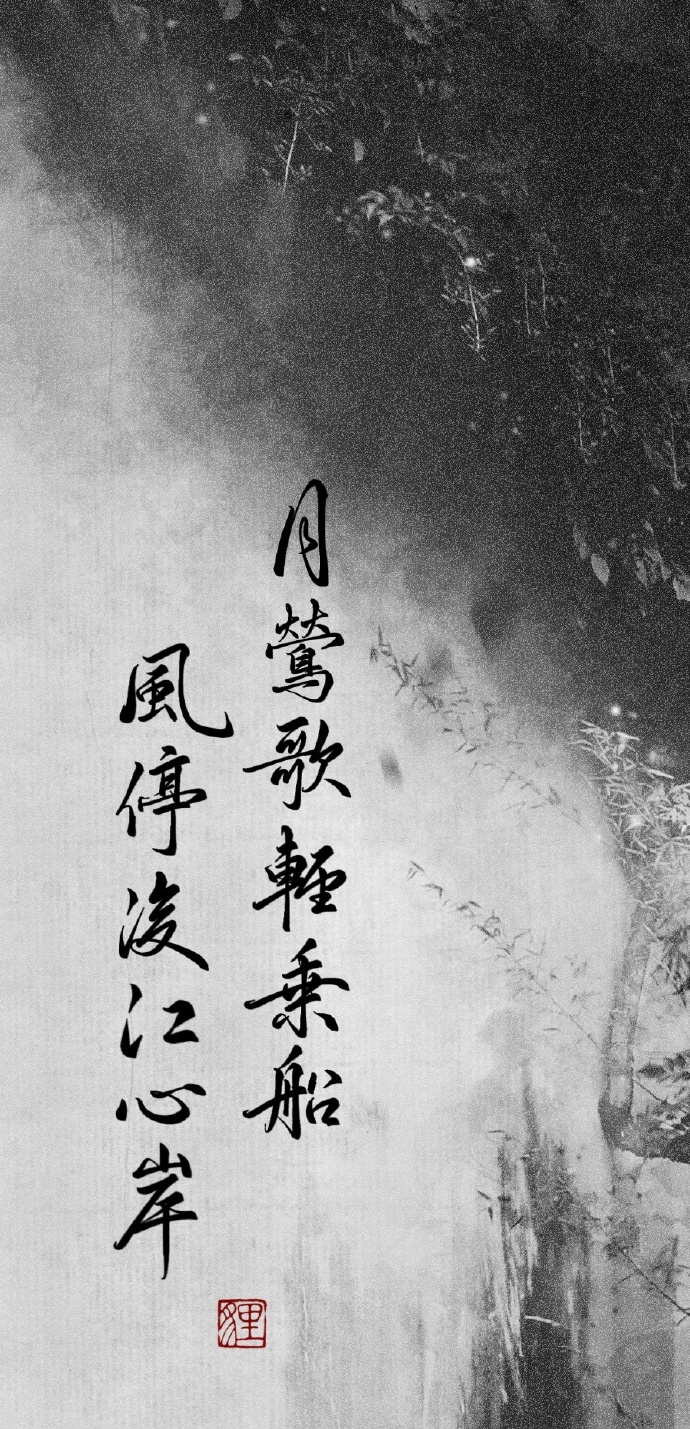 月鶯歌輕乘船
風停浚江心岸
貍